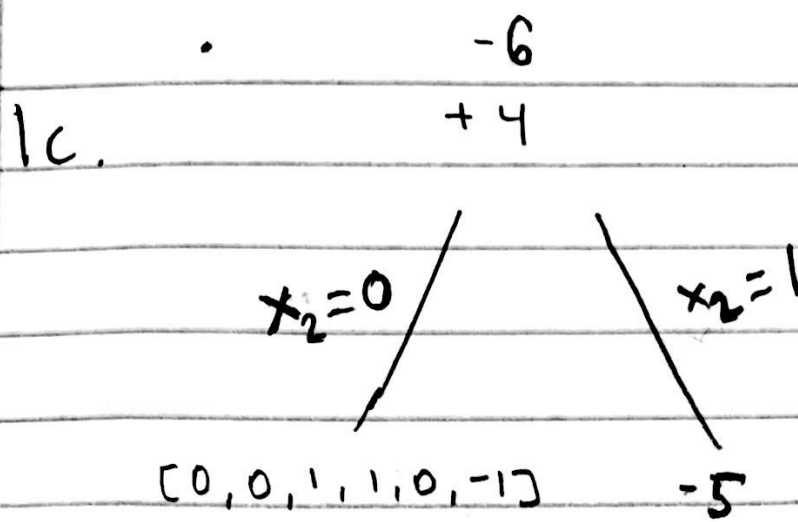 -6
1c. +4
x₂=0 x₂=1
[0,0,1,1,0,-1] -5